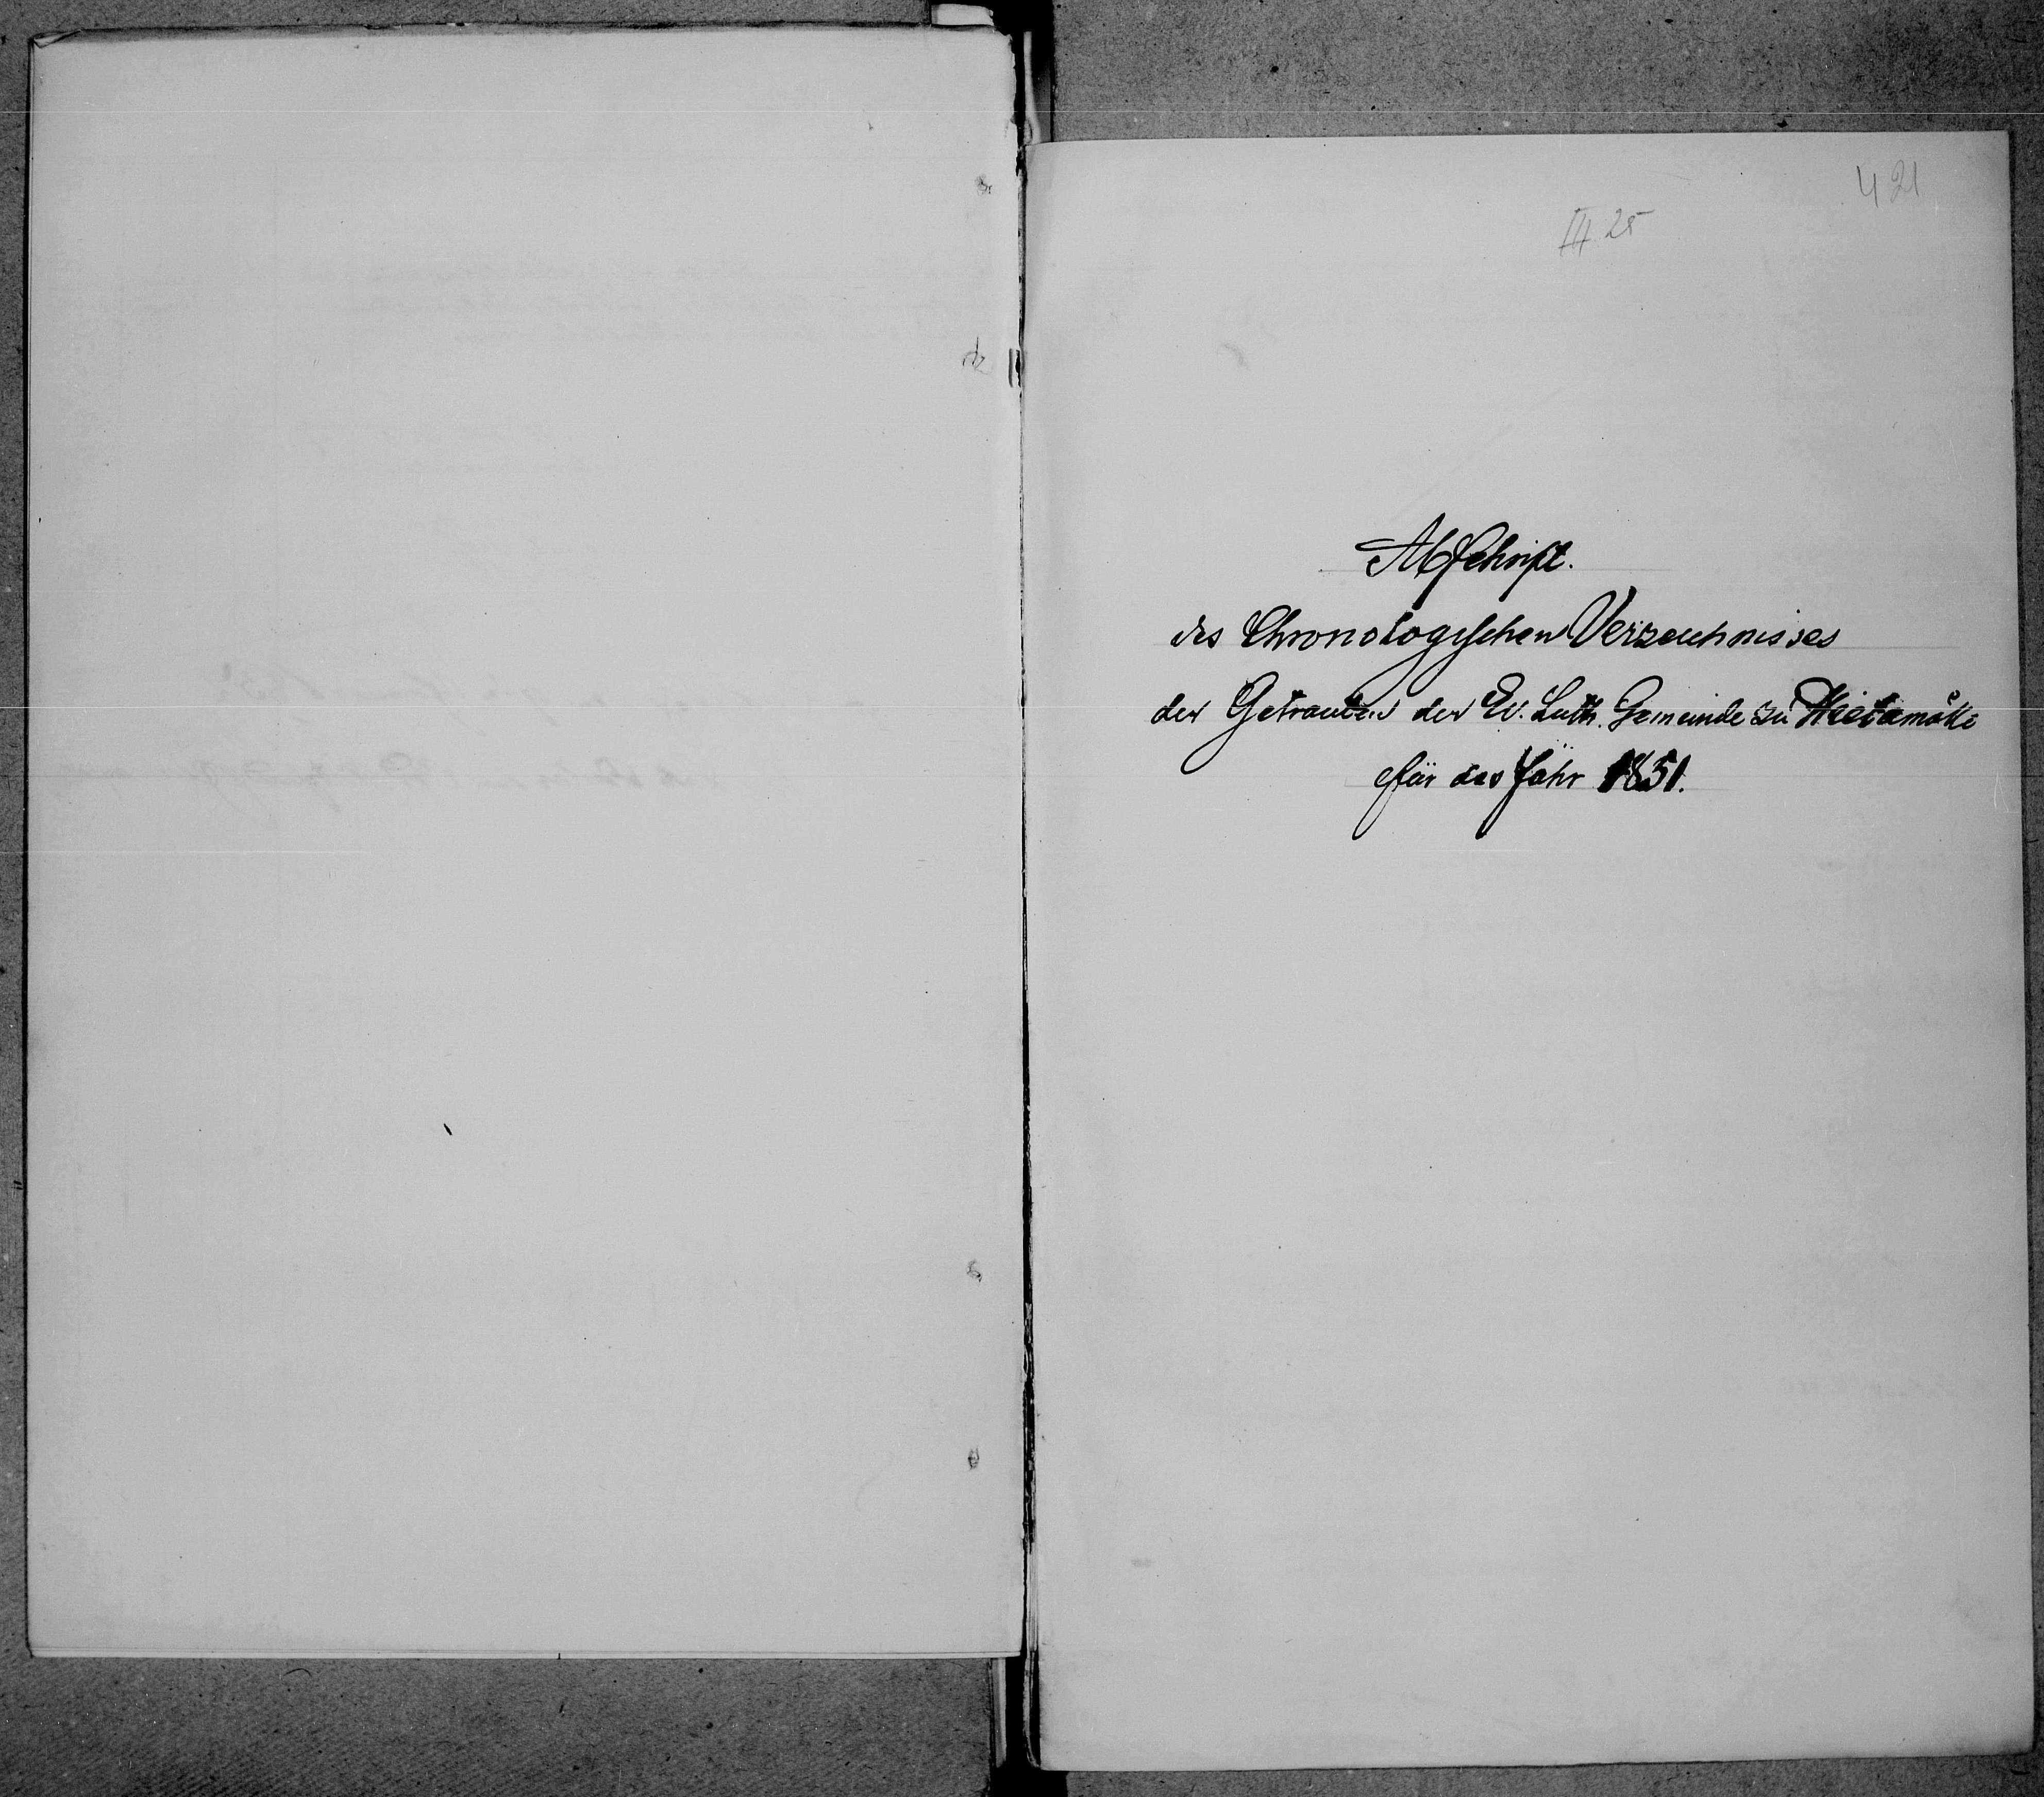 421
III 25
Abschrift.
des Chronologischen Verzeichnisses
der Getrauten der Ev. Luth. Gemeinde zu Hietamäki
für das Jahr 1851.